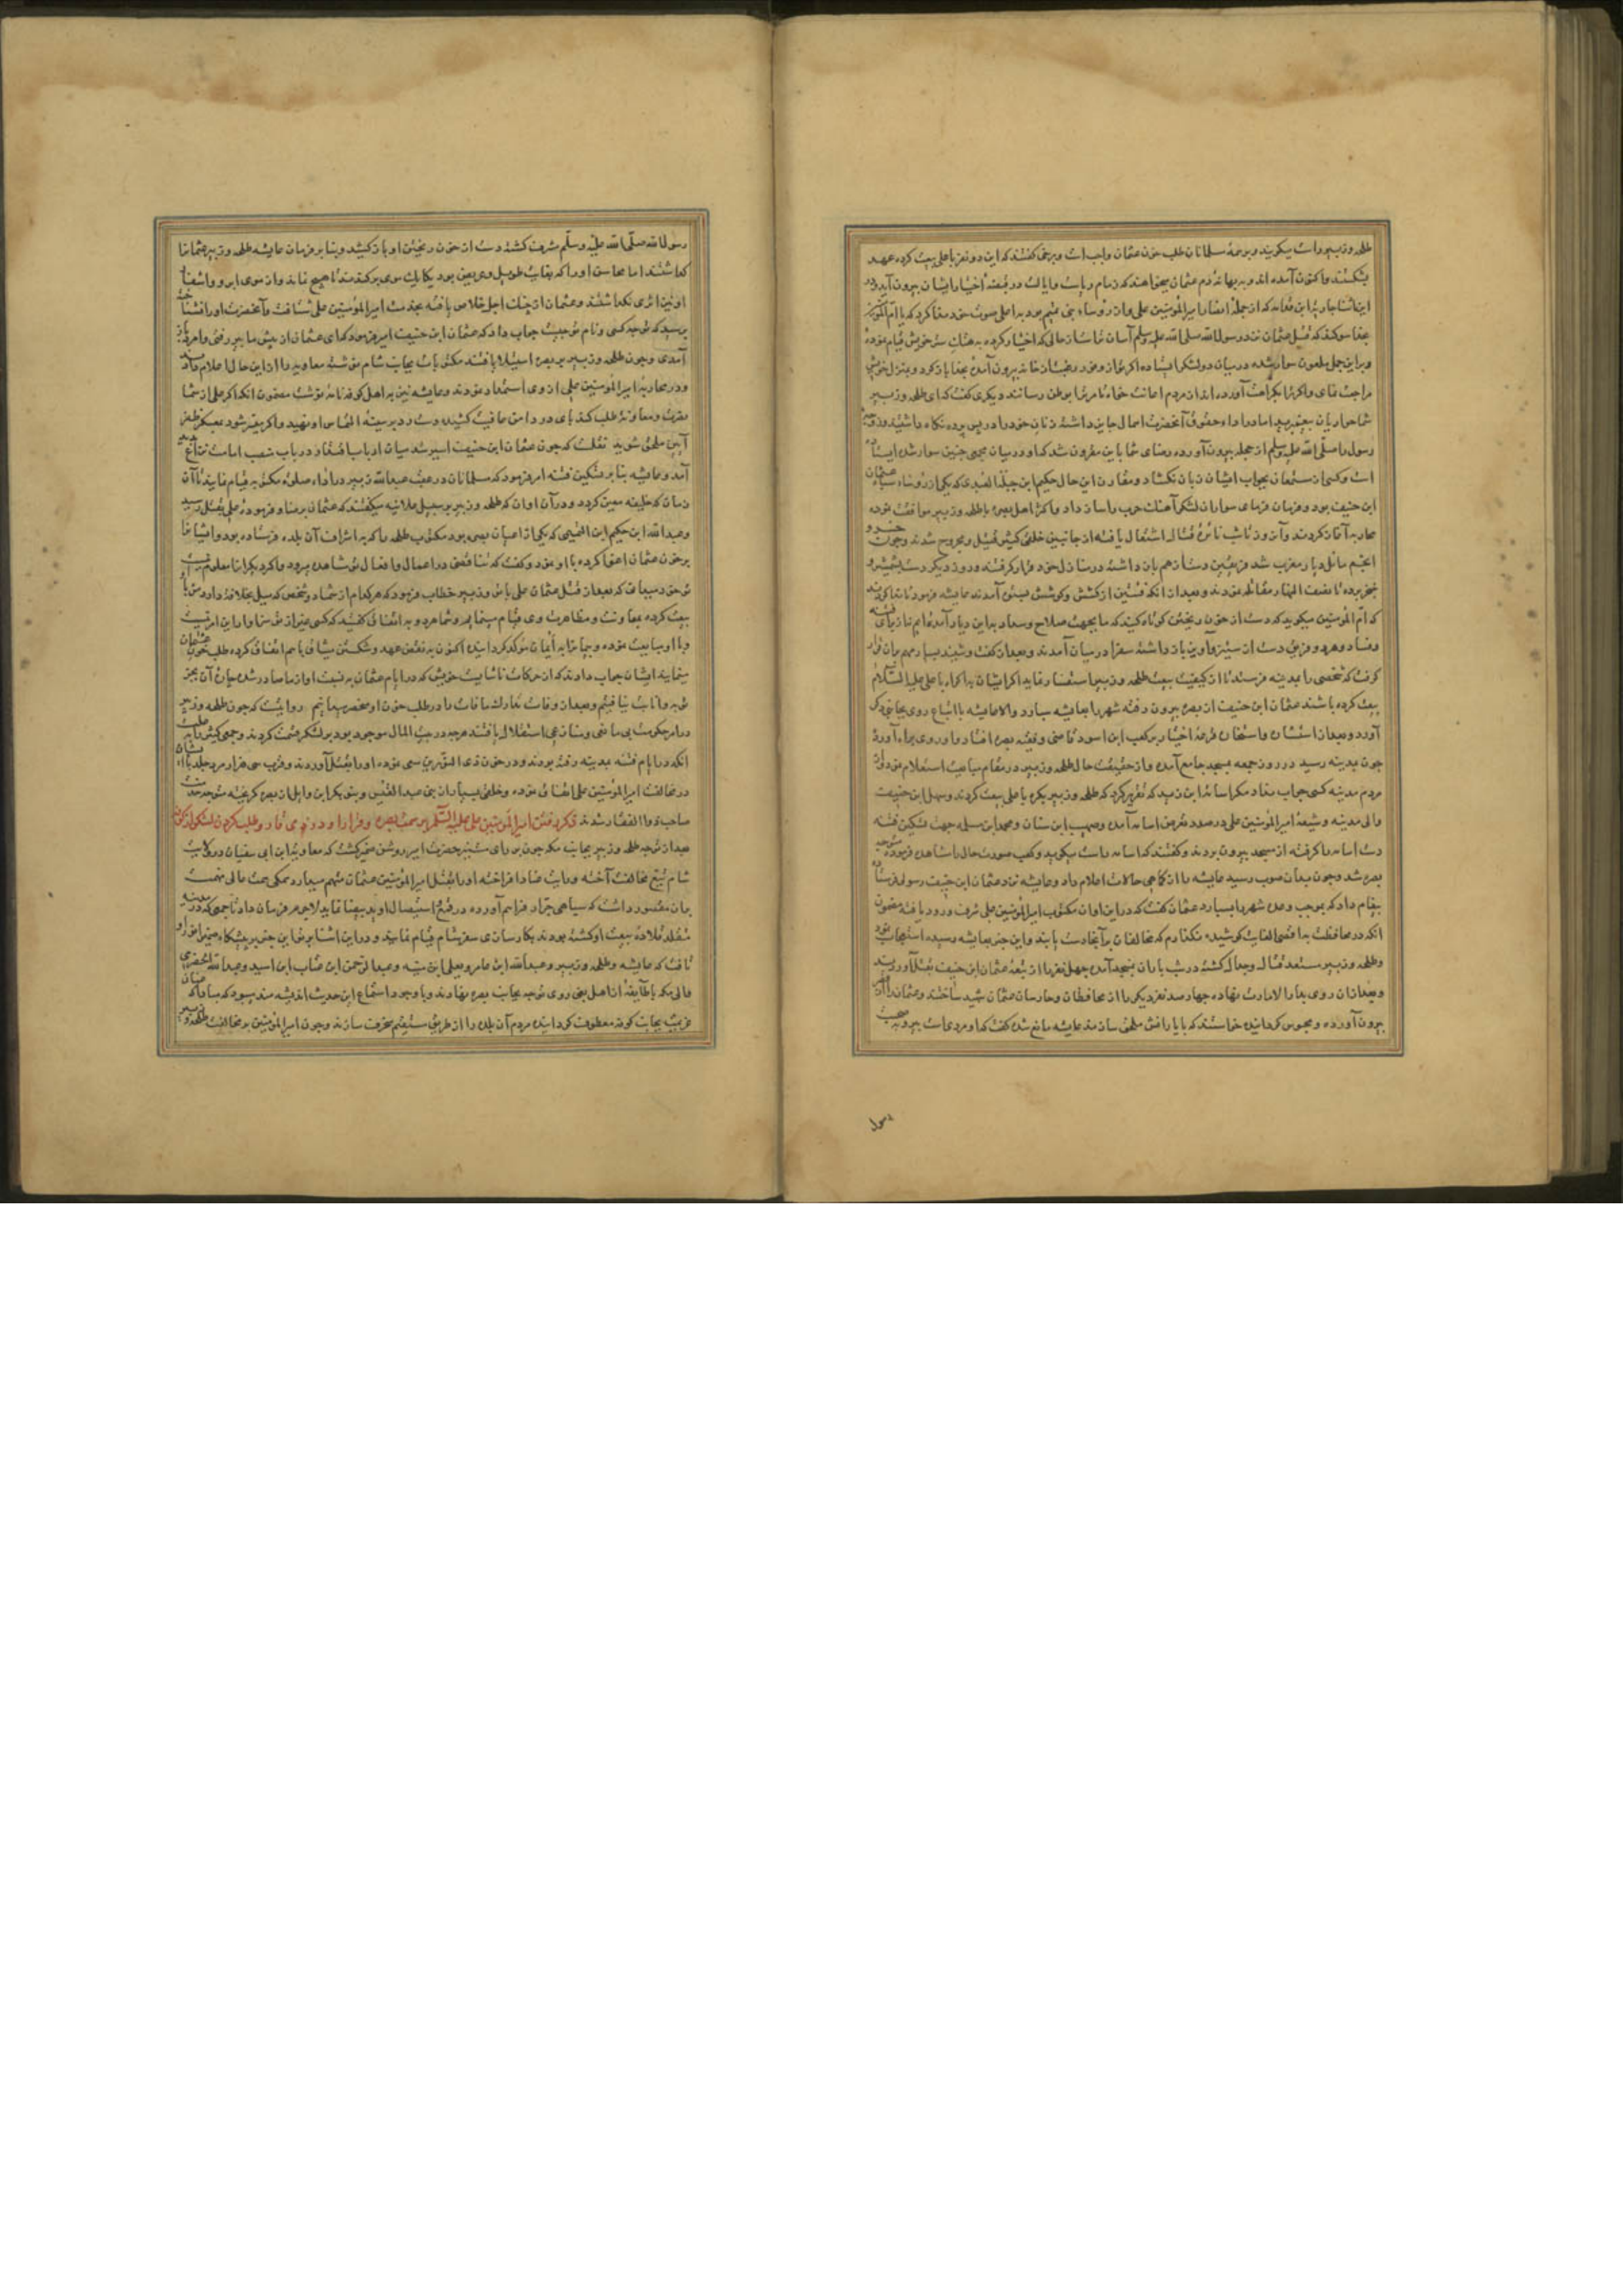 طلحه و زبیر راست میگویند و بر همهٔ مسلمانان طلب خون عثمان واجب است و برخی گفتند که این دو نفر با علی بیعت کرده عهد
بشکستند و اکنون آمده اند و به بهانهٔ دم عثمان میخواهند که زمام ریاست و ایالت در قبضهٔ اختیار ایشان بیرون آید و در
این اثنا جاریة ابن قدامه که از جملهٔ انصار امیرالمؤمنین علی و از رؤساء بنی تمیم بود به اعلی صوت خود ندا کرد که یا ام المؤمنین
بخدا سوگند که قتل عثمان نزد رسول الله صلی الله علیه وسلم آسان
و بر این جمل ملعون سوار شده در میان دو لشکر ایستاده اگر
مراجعت نمای و اگر ترا بکراهت آورده اند از مردم اعانت خواه تا مر ترا بوطن رسانند دیگری گفت که ای طلحه و زبیر
شما حواریان پیغمبرید اما و حقوق آنحضرت زنان خود را در پس پرده نگاه داشتید و زوجهٔ
رسول را صلی الله علیه وسلم از حجله بیرون آورده رضای خدا باین مقرون شد که او در میان جمعی چنین سوار شده ایستاده
است و کسی از مستمعان بجواب ایشان زبان نگشاد و مقارن این حال حکیم ابن جبلة العبدی که یکی از رؤساء سپاه عثمان
ابن حنیف بود و فرمان فرمای سواران لشکر آهنگ حرب را ساز داد و اکثر اهل بصره با طلحه و زبیر موافقت نموده
محاربه آغاز کردند و آن روز تا شب نائرهٔ قتال اشتعال یافته از جانبین خلقی کثیر قتیل و مجروح شدند و چون خسرو
انجم مائل دیار مغرب شد فریقین دست از هم باز داشته در منازل خود قرار گرفتند و روز دیگر دست بشمشیر و
خنجر برده تا نصف النهار مقاتله نمودند و بعد از آنکه فئتین از کشش و کوشش بستوه آمدند عایشه فرمود تا ندا کردند
که ام المؤمنین میگوید که دست از خون ریختن کوتاه کنید که ما بجهت صلاح و سداد به این دیار آمده ایم نه از برای فتنه
و فساد و هر دو فریق دست از ستیز و آویز باز داشته سفرا در میان آمدند و بعد از گفت و شنید بسیار مهم بران قرار
گرفت که شخصی را بمدینه فرستند تا از کیفیت بیعت طلحه و زبیر استفسار نماید اگر ایشان به اکراه با علی علیه السلام
بیعت کرده باشند عثمان ابن حنیف از بصره بیرون رفته شهر را بعایشه سپارد و الا عایشه با اتباع روی بجای خود
آورد و بعد از استشارت و استخارت قرعهٔ اختیار بر کعب ابن اسود قاضی و فقیه بصره افتاد و او روی براه آورده
چون بمدینه رسید در روز جمعه بمسجد جامع آمده و از حقیقت حال طلحه و زبیر در مقام مبایعت استعلام نمود از
مردم مدینه کسی جواب نداد مگر اسامة ابن زید که تقریر کرد که طلحه و زبیر بکره با علی بیعت کردند و سهل ابن حنیف
والی مدینه و شیعهٔ امیرالمؤمنین علی در صدد تعرض اسامه آمده و صهیب ابن سنان و محمد ابن مسلمه جهت تسکین فتنه
دست اسامه را گرفته از مسجد بیرون بردند و گفتند که اسامه راست میگوید و کعب صورت حال را مشاهده فرموده متوجه
بصره شد و چون بدان صوب رسید عایشه را از کماهی حالات اعلام داد و عایشه نزد عثمان ابن حنیف رسولی فرستاده
پیغام داد که بموجب وعده شهر را بسپارد عثمان گفت که در این اوان مکتوب امیرالمؤمنین علی شرف ورود یافته مضمون
آنکه در محافظت به اقصی الغایت کوشیده نگذارم که مخالفان بر آنجا دست یابند و این خبر بعایشه رسیده
و طلحه و زبیر مستعد قتال و جدال گشته در شب باران بمسجد آمده چهل نفر را از تبعهٔ عثمان ابن حنیف بقتل آوردند
و بعد از آن روی بدار الامارت نهاده چهار صد نفر دیگر را از محافظان و حارسان عثمان شهید ساختند و عثمان را
بیرون آورده و محبوس گردانیده خواستند که با یارانش ملحق سازند عایشه مانع شده گفت که او مردی است پیر و به صحبت
رسول
رسول الله صلی الله علیه وسلم مشرف گشته دست از خون ریختن او باز کشید و بنا بر فرمان عایشه طلحه و زبیر عثمان را
گذاشتند اما محاسن او را که بغایت طویل و عریض بود یکایک موی برکندند تا هیچ نماند و از موی ابرو و اشفار
او نیز اثری نگذاشتند و عثمان از چنگ اجل خلاص یافته بخدمت امیرالمؤمنین علی شتافت و آنحضرت او را نشناخته
پرسید که تو چه کسی و نام تو چیست جواب داد که عثمان ابن حنیف امیر فرمود که ای عثمان از پیش ما پیر رفتی و امرد باز
آمدی و چون طلحه و زبیر بر بصره استیلا یافتند مکتوبات بجانب شام نوشته معاویه را از این حال اعلام دادند
و در محاربهٔ امیرالمؤمنین علی از وی استمداد نمودند و عایشه نیز به اهل کوفه نامه نوشت مضمون آنکه اگر علی از شما
نصرت و معاونت طلب کند پای در دامن عافیت کشیده دست رد بر سینهٔ التماس او نهید و اگر میسر شود بعسکر ظفر
آیین ملحق شوید نقلست که چون عثمان ابن حنیف اسیر شد میان ارباب فساد در باب منصب امامت نزاع
آمد و عایشه بنا بر تسکین فتنه امر فرمود که مسلمانان در عقب عبدالله زبیر در اداء صلوة مکتوبه قیام نمایند تا آن
زمان که خلیفه معین گردد و در آن اوان که طلحه و زبیر بر سبیل علانیه میگفتند که عثمان برضا و فرمودهٔ علی بقتل رسید
و عبدالله ابن حکیم ابن التمیمی که یکی از اعیان بصره بود مکتوب طلحه را که به اشراف آن بلده فرستاده بود و ایشان را
بر خون عثمان اغوا کرده با او نمود و گفت که تناقض در اعمال و افعال تو مشاهده میرود
تو خود میدانی که بعد از قتل عثمان علی با تو و زبیر خطاب فرمود که هر کدام از شما دو شخص که میل بخلافت دارد من با او
بیعت کرده بمعاونت و مظاهرت وی قیام مینمایم و شما هر دو به اتفاق گفتید که کسی غیر از تو سزاوار این امر نیست
و با او مبایعت نموده و پیمان را به ایمان مؤکد گردانیده اکنون به نقض عهد و شکستن میثاق با هم اتفاق کرده طلب خون عثمان
مینمایید ایشان جواب دادند که از حرکات ناشایست خویش که در ایام عثمان به نسبت او از ما صادر شده
توبه و انابت نیافتیم و بعد از وفات تدارک مافات را در طلب خون او منحصر میدانیم روایتست که چون طلحه و زبیر
در امر حکومت بی مانعی و منازعی استقلال یافتند هر چه در بیت المال موجود بود بر لشکر قسمت کردند و جمعی کثیر را به علت
آنکه در ایام فتنه بمدینه رفته بودند و در خون ذی النورین سعی نموده او را بقتل آوردند
در مخالفت امیرالمؤمنین علی اتفاق نموده و خلقی بسیار از بنی عبدالقیس و بنو بکر ابن وایل از بصره گریخته متوجه خدمت
صاحب ذوالفقار شدند ذکر رفتن امیرالمؤمنین علی علیه السلام بر سمت بصره و نزول او در ذی قار و طلب کردن لشکر از کوفه
بعد از توجه طلحه و زبیر بجانب مکه چون بر رای منیر حضرت امیر روشن ضمیر گشت که معاویة ابن ابی سفیان در ولایت
شام تیغ مخالفت آخته و رایت عناد افراخته او را بقتل امیرالمؤمنین عثمان متهم میدارد همگی همت عالی نهمت
بران مقصور داشت که سپاهی جرار فراهم آورده در قلع و استیصال او ید بیضا نماید لاجرم فرمان داد تا جمعی که در مدینه
متقلد قلادهٔ بیعت او گشته بودند بکارسازی سفر شام قیام نمایند و در این اثنا پرتو این خبر بر پیشگاه ضمیر انور او
تافت که عایشه و طلحه و زبیر و عبدالله ابن عامر و یعلی ابن منیه و عبدالرحمن ابن عتاب ابن اسید و عبدالله الحضرمی
والی مکه با طایفهٔ از اهل بغی روی توجه بجانب بصره نهادند و با وجود استماع این حدیث اندیشه مند میبود که مبادا که عنان
عزیمت بجانب کوفه معطوف گردانیده مردم آن بلده را از طریق مستقیم منحرف سازند و چون امیرالمؤمنین بر مخالفت طلحه و زبیر